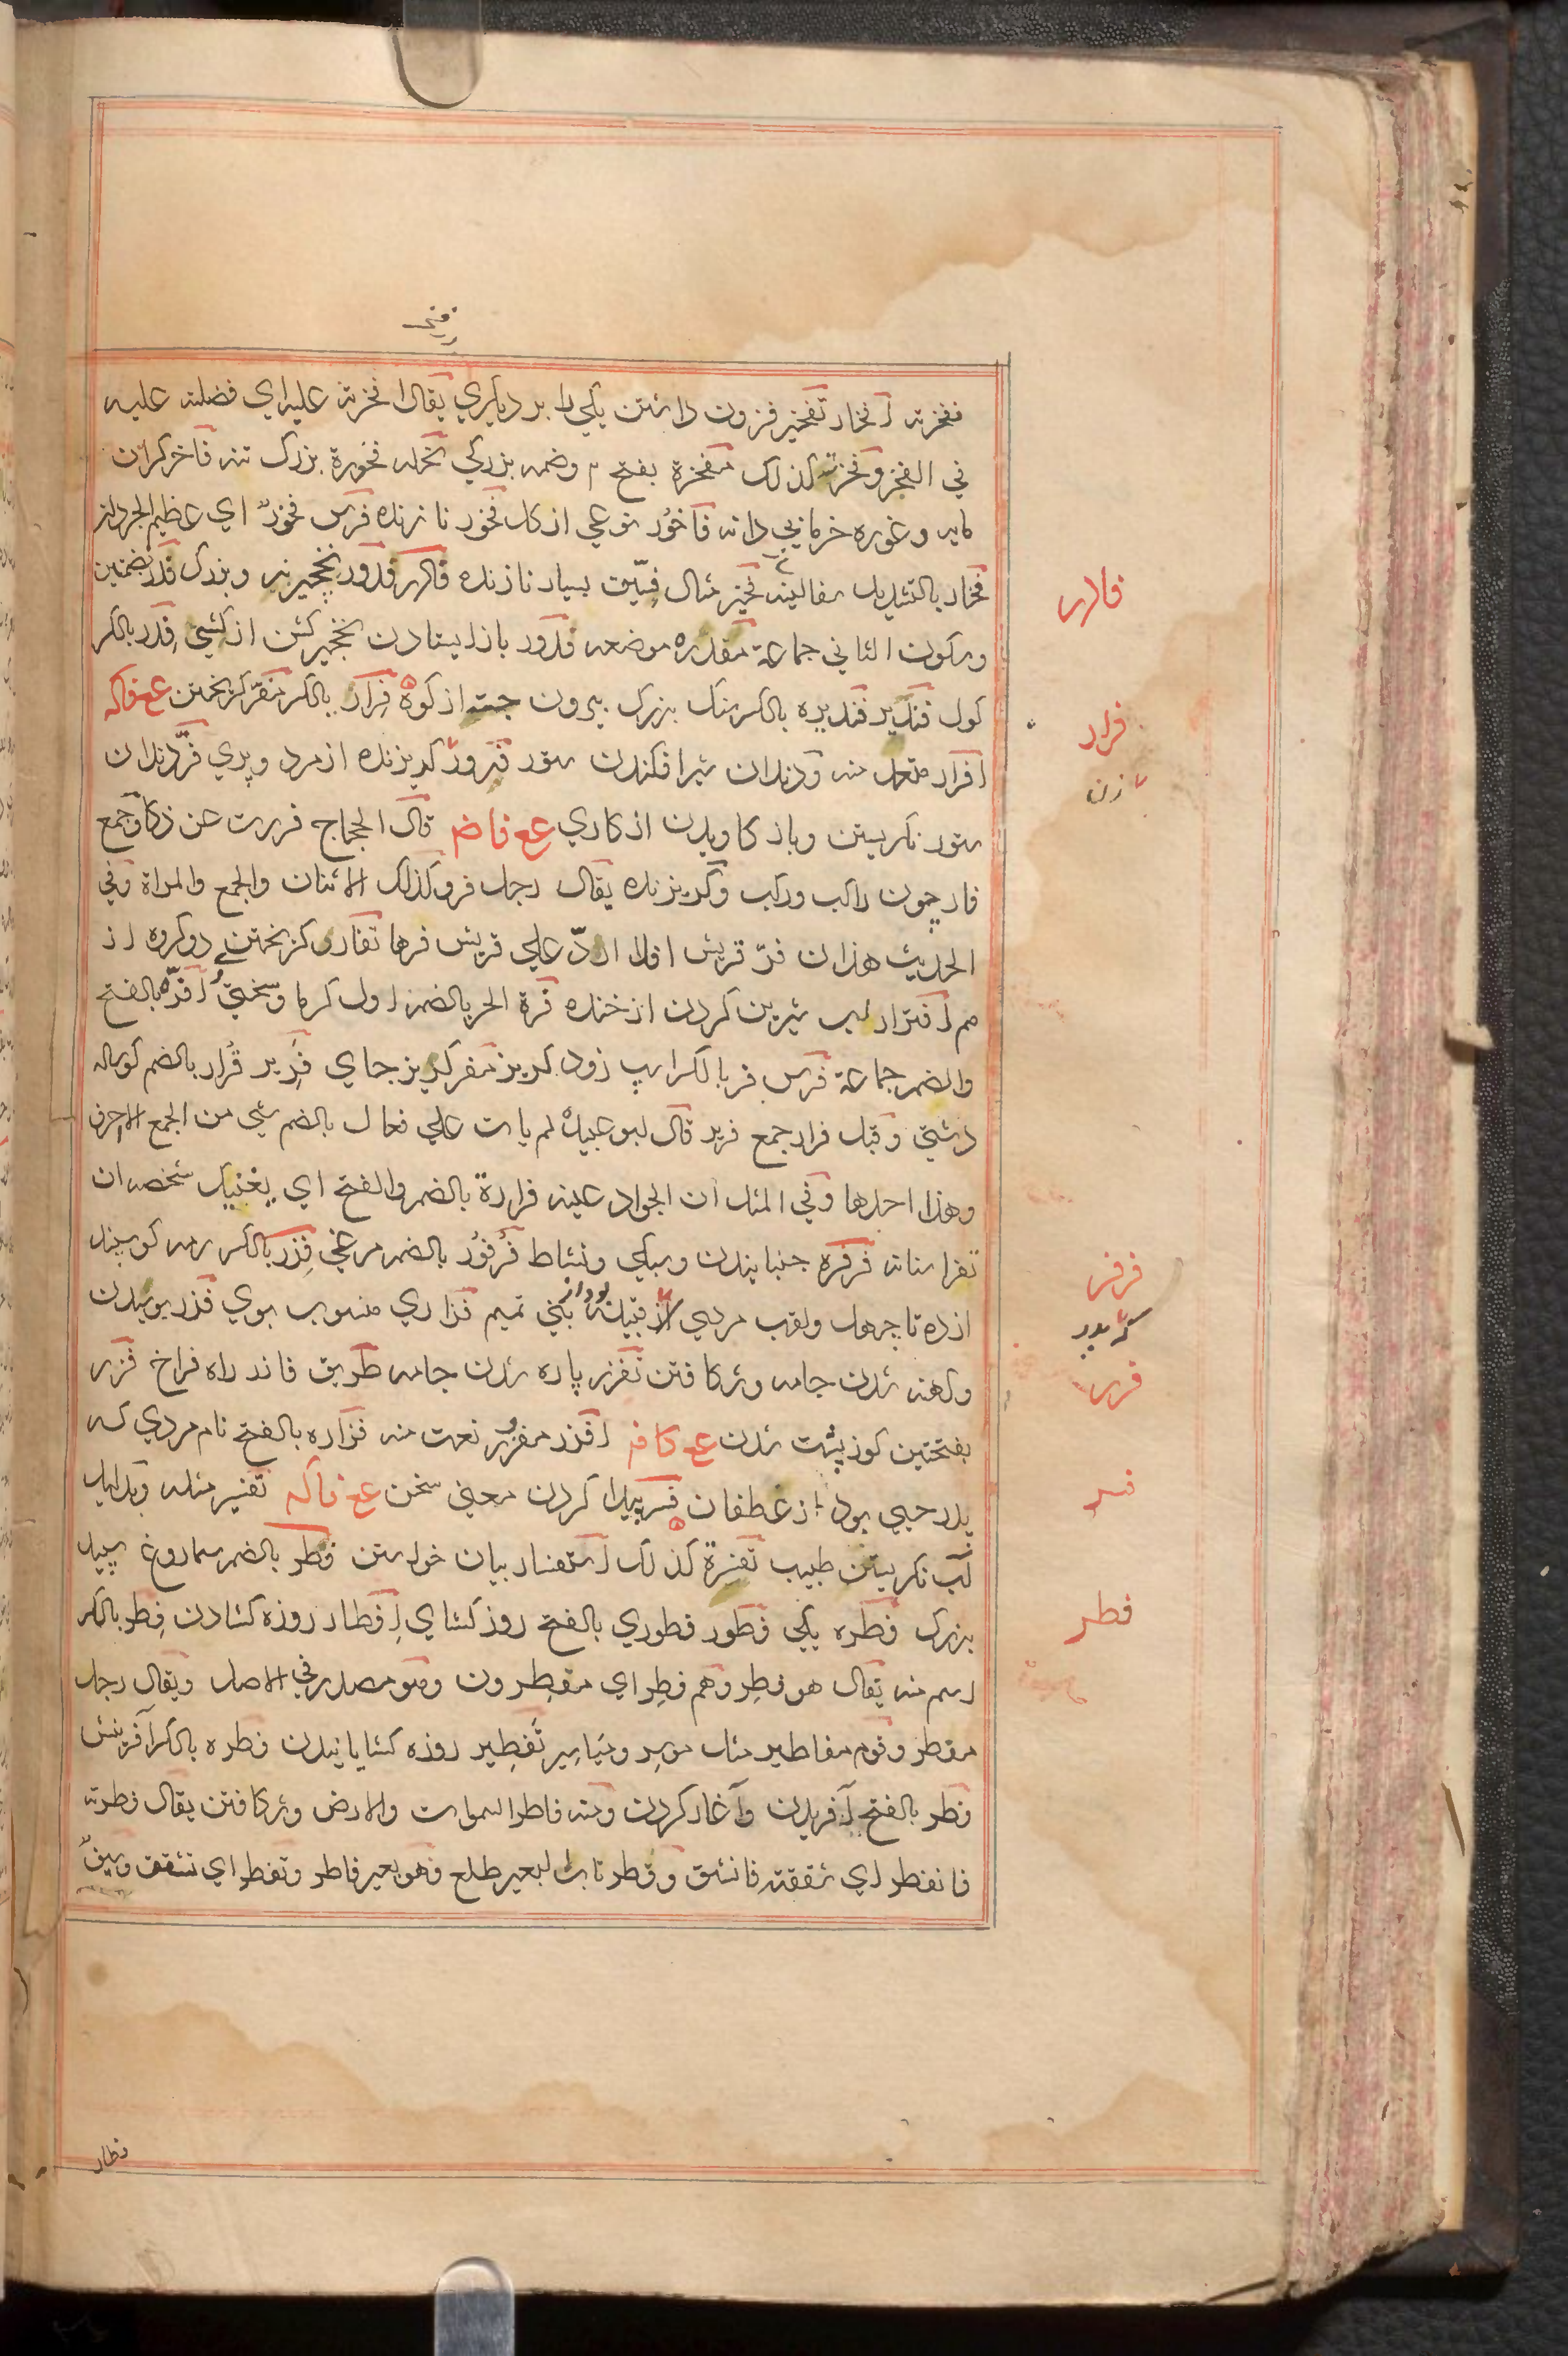 ففخرته افخار تفخیر فزون داشتن یکی را بر دیگری یقال افخرته علیه ای فضلته علیه
في الفخر وفخرته کذلک مفخرة بفتح م وضمه بزرکی نخله فخورة بزرک تنه فاخر کران
مایه وغوره خرما بی دانه فاخور نوعی از کل فخور نازنده فرس فخور ای عظیم الجردان
فخار بالتشدید سفالینه فخیر مثال فسیق بسیار نازنده فادر فدور نخجیر نر وبزرک فدر بضمتین
وسکون الثاني جماعة مفدره موضعه فدور باز ایستادن نخجیر کشن از کشنی فدر بالکسر
کول فندیر فندیره بالکسر سنک بزرک بیرون جسته از کوه فرار بالکسر مفر کریختن ع ف اکه
افرار متعد منه ودندان شیر افکندن ستور فرور کریزنده از مرد وپری فر دندان
ستور نکریستن وباز کاویدن از کاری ع ع ف اض قال الحجاج فررت عن ذکاء وجمع
فار چون راکب ورکب وکریزنده یقال رجل فر وکذلک الاثنان والجمع والمراة وفي
الحدیث هذان فر قریش افلا ارد علی قریش فرها تفار کریختن دو کروه از
هم افترار لب شیرین کردن از خنده فرة الحر بالضم اول کرما وسختی افره بالفتح
والضم جماعة فرس فر بالکسر اسپ زود کریز مفر کریز جای فریر فرار بالضم کوساله
دشتی وقیل فرار جمع فریر قال ابو عبیده لم یات علی فعال بالضم شی من الجمع الا احرف
وهذا احدها وفي المثل ان الجواد عینه فراره بالضم والفتح ای یغنیک شخصه ان
تفر اسنانه فرفره جنبانیدن وسبکی ونشاط فرفور بالضم مرغی فزر بالکسر رمه کوسپند
از ده تا چهل ولقب مردی از قبیله بود از بنی تمیم فزاری منسوب بوی فزر پوسیدن
وکهنه شدن جامه وشکافتن تفزر پاره شدن جامه طریق فازر راه فراخ فزر
بفتحتین کوز پشت شدن ع ک اف افزر مفزور نعت منه فزاره بالفتح نام مردی که
پدر حیی بود از غطفان فسر پیدا کردن معنی سخن ع ف اکه تفسیر مثله وبدلیل
آب نکریستن طبیب تفسرة کذلک استفسار بیان خواستن فطر بالضم سماروغ سپید
بزرک فطره یکی فطور فطوري بالفتح روز کشای افطار روزه کشادن فطر بالکسر
اسم منه یقال هو فطر وهم فطر ای مفطرون وهو مصدر في الاصل ویقال رجل
مفطر وقوم مفاطیر مثل موسر ومیاسیر تفطیر روزه کشایانیدن فطره بالکسر آفرینش
فطر بالفتح آفریدن وآغاز کردن ومنه فاطر السموات والارض وشکافتن یقال فطرته
فانفطر ای شققته فانشق وفطر ناب البعیر طلع فهو بعیر فاطر وتفطر ای تشقق وسیف
فدر
فرر
فرفر
فزر
فسر
فطر
فطار